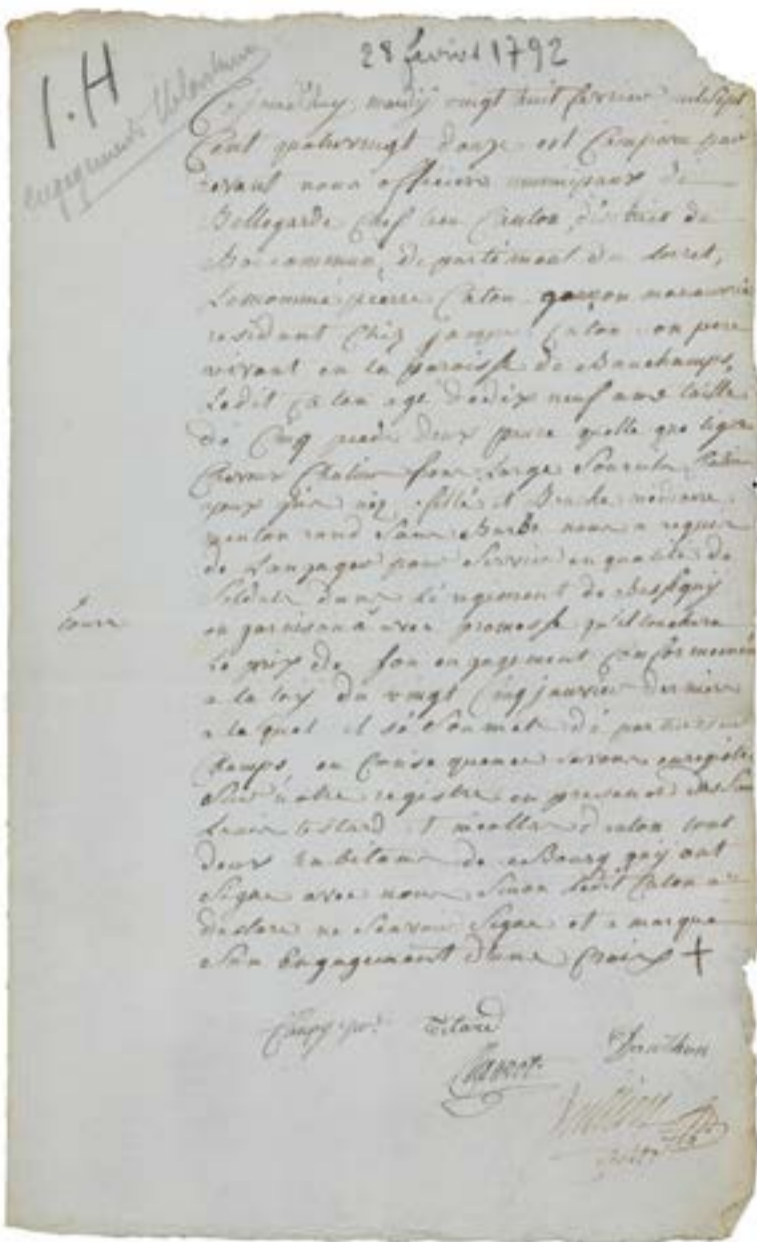 28 février 1792
1.H
engagements Volontaires
Cejourd'huy mardy vingt huit fevrier mil sept
Cent quatrevingt douze est Comparu par
devant nous officiers municipaux de
Bellegarde Chef lieu Canton, district de
Boiscommun, departement du Loiret,
Lenommé pierre Caton garçon manouvrier
residant Chez jacque Caton son pere
vivant en la paroisse de Beauchamps,
Ledit Caton agé dedix neuf ans taille
de Cinq pieds deux pouce quelle que ligne
Cheveux Chatin fron Large Sourcils
yeux gris nez éffilé et Bouche médiocre
menton rond Sans Barbe nous a requis
de Langager pour Servir en quallité de
Soldat dans Le regiment de
en garnison à avec promesse qu'il touchera
Le prix de son engagement Conformément
a la loy du vingt Cinq janvier dernier
a la quel il se Soumet dé
temps, en Conséquence Lavons enregistré
Sur notre registre en presence de
Louis testard et nicollas danton tout
deux habitans de ce Bourg quy ont
Signé avec nous Sinon Ledit Caton a
declaré ne Savoir Signé et a marqué
Son Engagement d'une Croix +
Tetard
Danthon